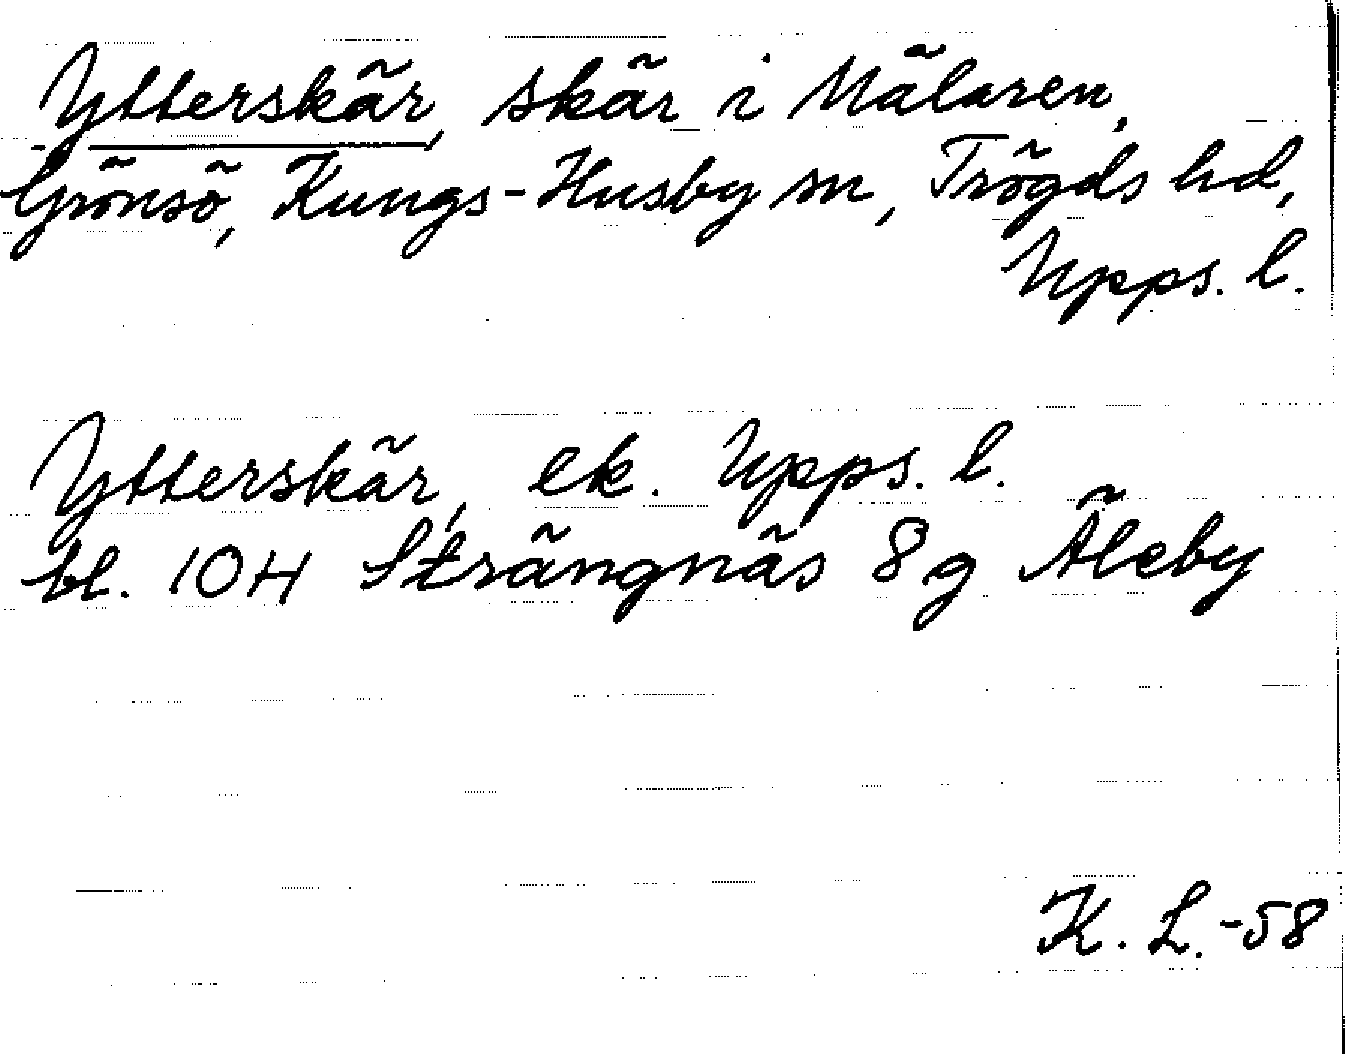 Ytterskär, skär i Mälaren,
Grönsö, Kungs-Husby sn, Trögds hd,
Upps. l.
Ytterskär, ek. Upps. l.
bl. 10H Strängnäs 8g Äleby
K. L. -58